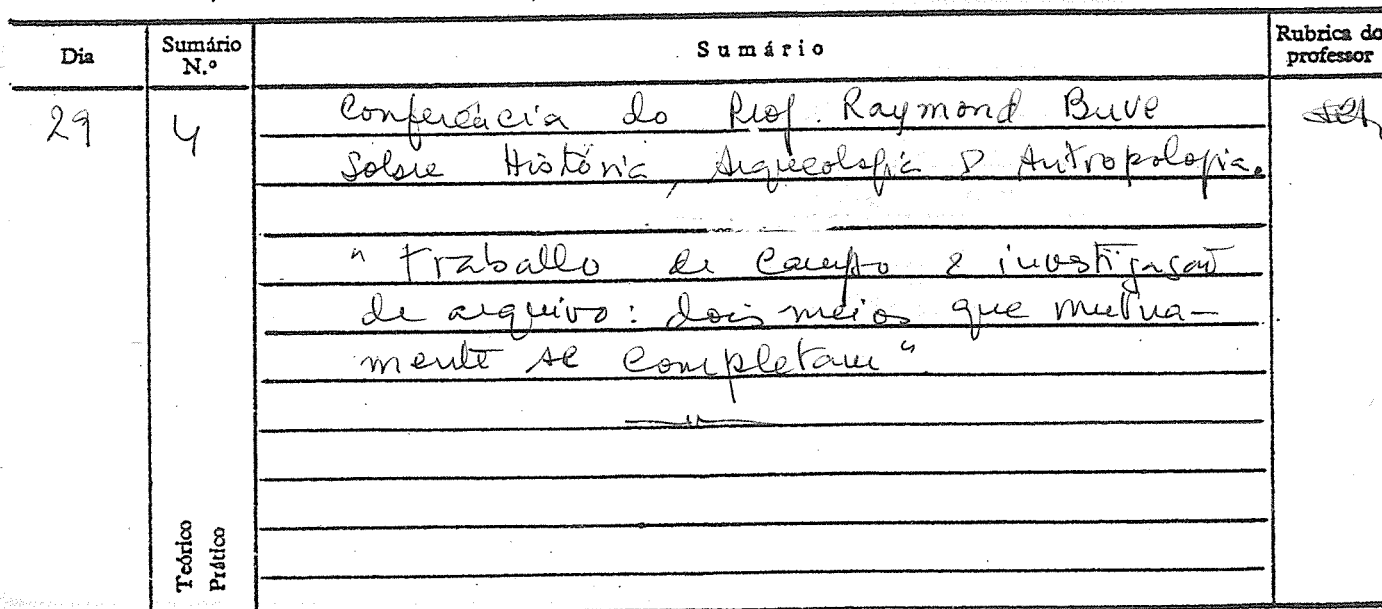 Dia Sumário N.º Sumário Rubrica do professor
29 4 Conferência do Prof. Raymond Buve
sobre História, Arqueologia e Antropologia.
"Traballo de Campo e investigação
de arquivo: dois meios que mutua-
mente se completam"
Teórico
Prático